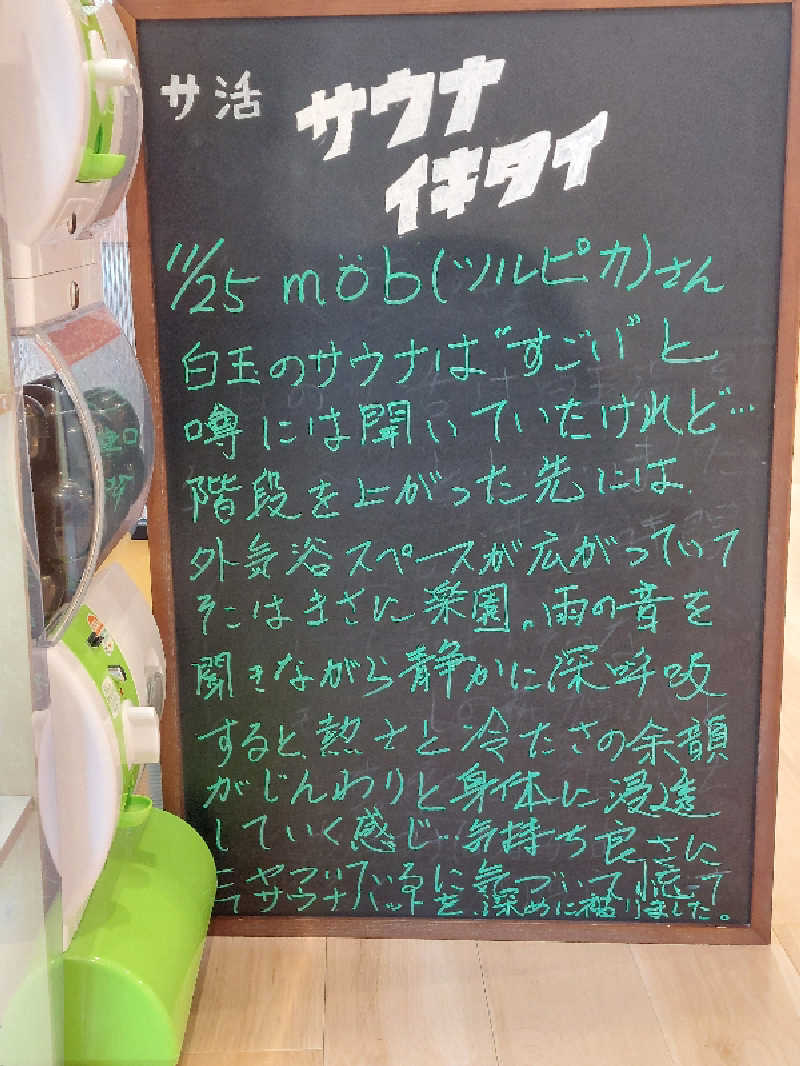 サ活 サウナ
イキタイ
11/25 möb(ツルピカ)さん
白玉のサウナは"すごい"と
噂には聞いていたけれど…
階段を上がった先には、
外気浴スペースが広がっていて
そこはまさに楽園。雨の音を
聞きながら静かに深呼吸
すると、熱さと冷たさの余韻
がじんわりと身体に浸透
していく感じ…気持ち良さに
ニヤついてるに気づいて慌って
サウナハットを深めに被りました。